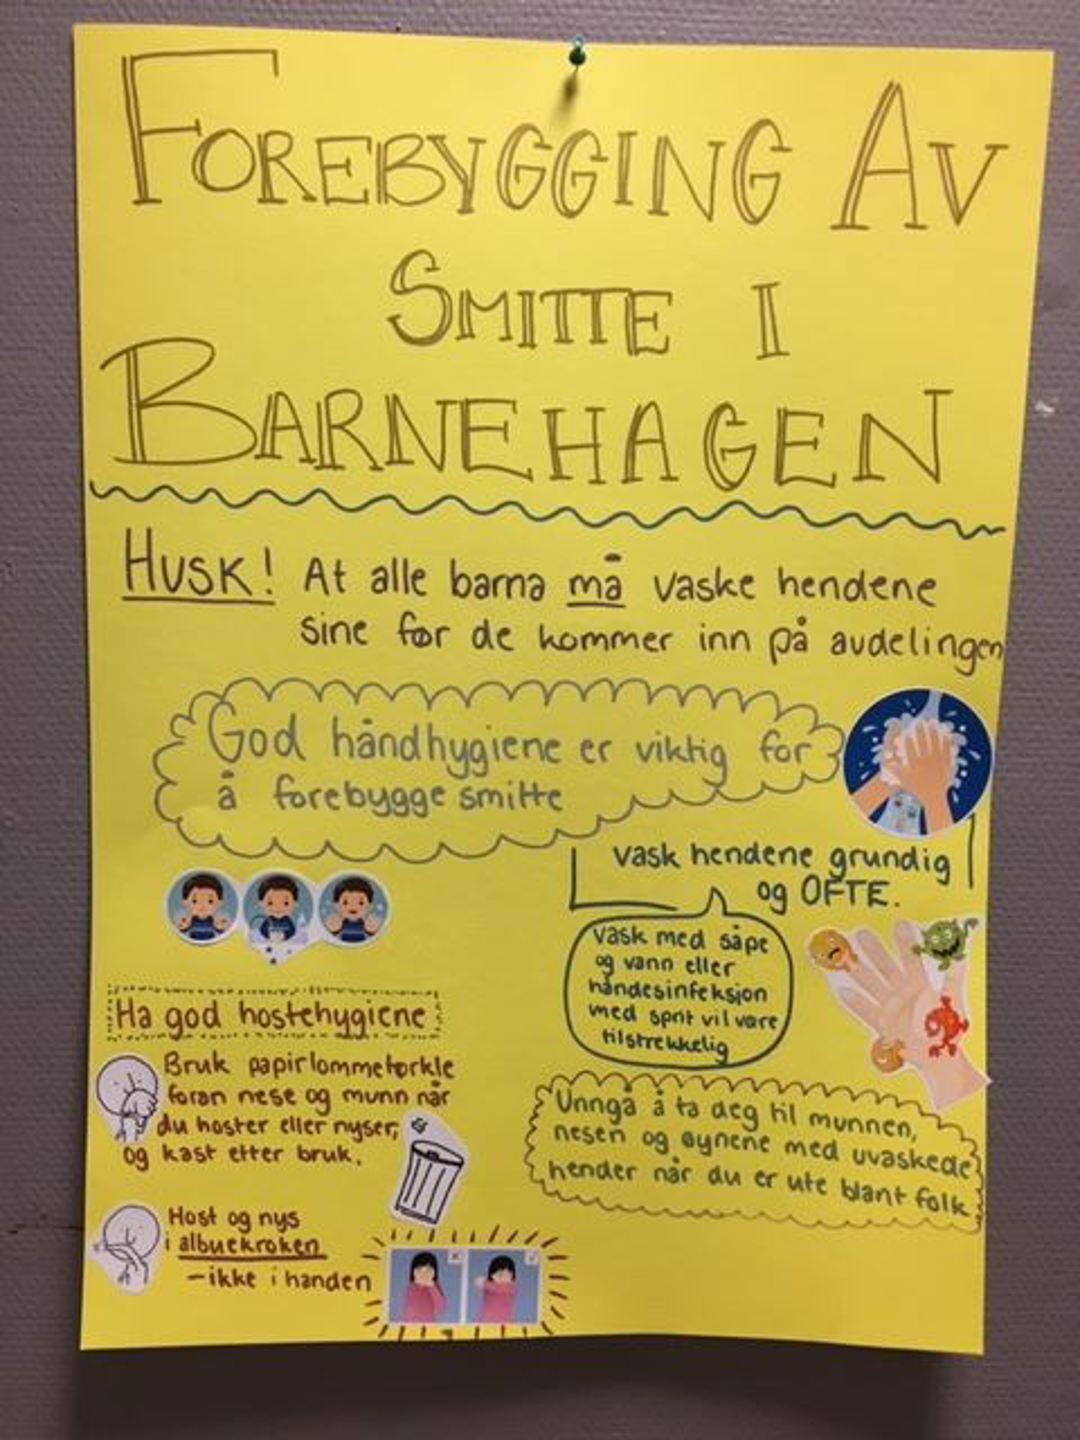 FOREBYGGING AV
SMITTE I
BARNEHAGEN
HUSK! At alle barna må vaske hendene
sine før de kommer inn på avdelingen
God håndhygiene er viktig for
å forebygge smitte
vask hendene grundig
og OFTE.
vask med såpe
og vann eller
håndesinfeksjon
med sprit vil være
tilstrekkelig
Ha god hostehygiene
Bruk papirlommetørkle
foran nese og munn når
du hoster eller nyser,
og kast etter bruk.
Unngå å ta deg til munnen,
nesen og øynene med uvaskede
hender når du er ute blant folk
Host og nys
i albuekroken
-ikke i handen